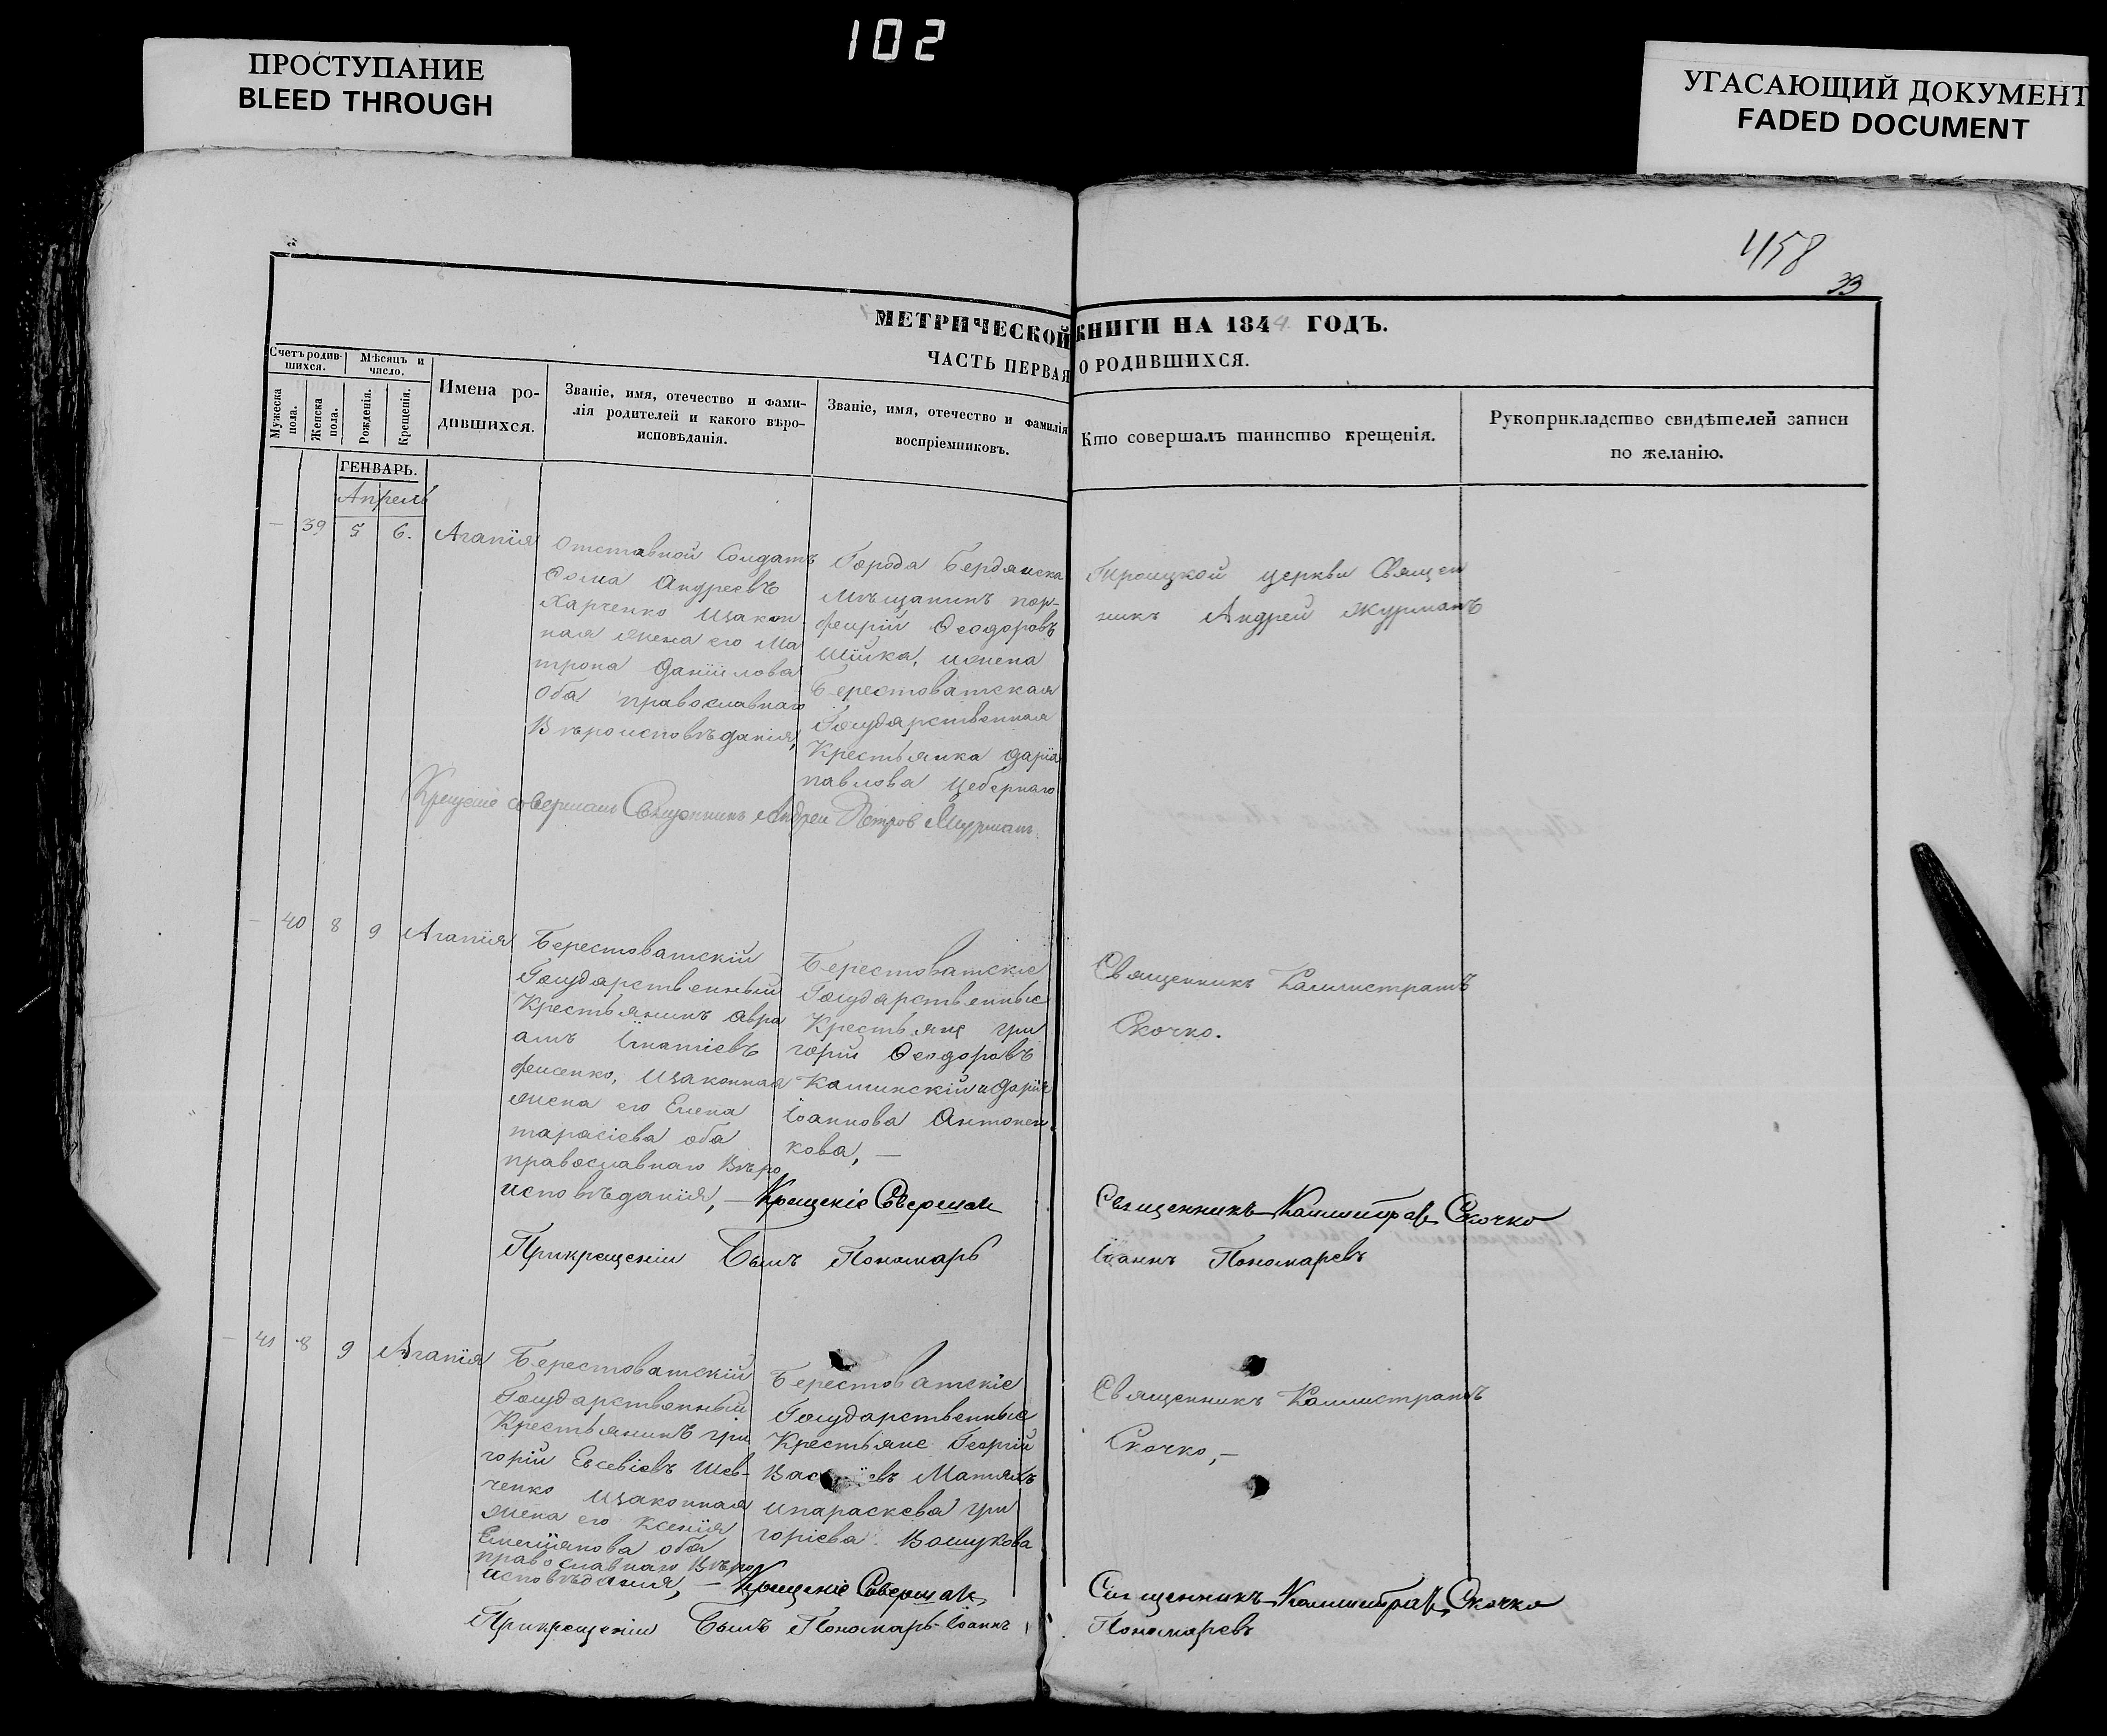 102
ПРОСТУПАНИЕ
BLEED THROUGH
УГАСАЮЩИЙ ДОКУМЕНТ
FADED DOCUMENT
458
33
МЕТРИЧЕСКОЙ КНИГИ НА 1844 ГОДЪ.
ЧАСТЬ ПЕРВАЯ О РОДИВШИХСЯ.
Счетъ родив-
шихся.
Мѣсяцъ и
число.
Мужеска
пола.
Женска
пола.
Рожденія.
Крещенія.
Имена ро-
дившихся.
Званіе, имя, отечество и фами-
лія родителей и какого вѣро-
исповѣданія.
Званіе, имя, отечество и фамилія
воспріемниковъ.
Кто совершалъ таинство крещенія.
Рукоприкладство свидѣтелей записи
по желанію.
ГЕНВАРЬ.
Апрель
— 39 5 6. Агапія
Отставной Солдатъ
Ѳома Андреевъ
Харченко изакон
ная жена его Ма
трона Даніилова
Оба православнаго
Вѣроисповѣданія,
Города Бердянска
Мѣщанинъ пор-
фирій Ѳеодоровъ
Шійка, ижена
Берестоватская
Государственная
Крестьянка дарія
павлова Цебернаго
Троицкой церкви Священ
никъ Андрей Журманъ
Крещение совершалъ Священникъ Андреи Петров Журманъ
— 40 8 9 Агапія
Берестоватскій
Государственный
Крестьянинъ авра
амъ Ігнатіевъ
фесенко, изаконная
жена его Елена
тарасіева оба
православнаго Вѣро
исповѣданія, —
Берестоватские
Государственные
Крестьяне гри
горій Ѳеодоровъ
Калинскій и дарія
Іоаннова Антонен
кова, —
Священникъ Каллистратъ
Скочко.
Крещеніе Совершал Священникъ Каллистрат Скочко
Прикрещеніи Былъ Пономарь Іоаннъ Пономаревъ
— 41 8 9 Агапія
Берестоватскій
Государственный
Крестьянинъ гри
горій Евсевіевъ Шев-
ченко изаконная
жена его Ксенія
Емеліянова оба
православнаго Вѣро
исповѣдания, —
Берестоватскіе
Государственные
Крестьяне Георгій
Матяхъ
ипараскева гри
горіева
Священникъ Каллистратъ
Скочко, —
Крещеніе Совершал Священникъ Каллистрат Скочко
Прикрещеніи Былъ Пономарь Іоаннъ Пономаревъ